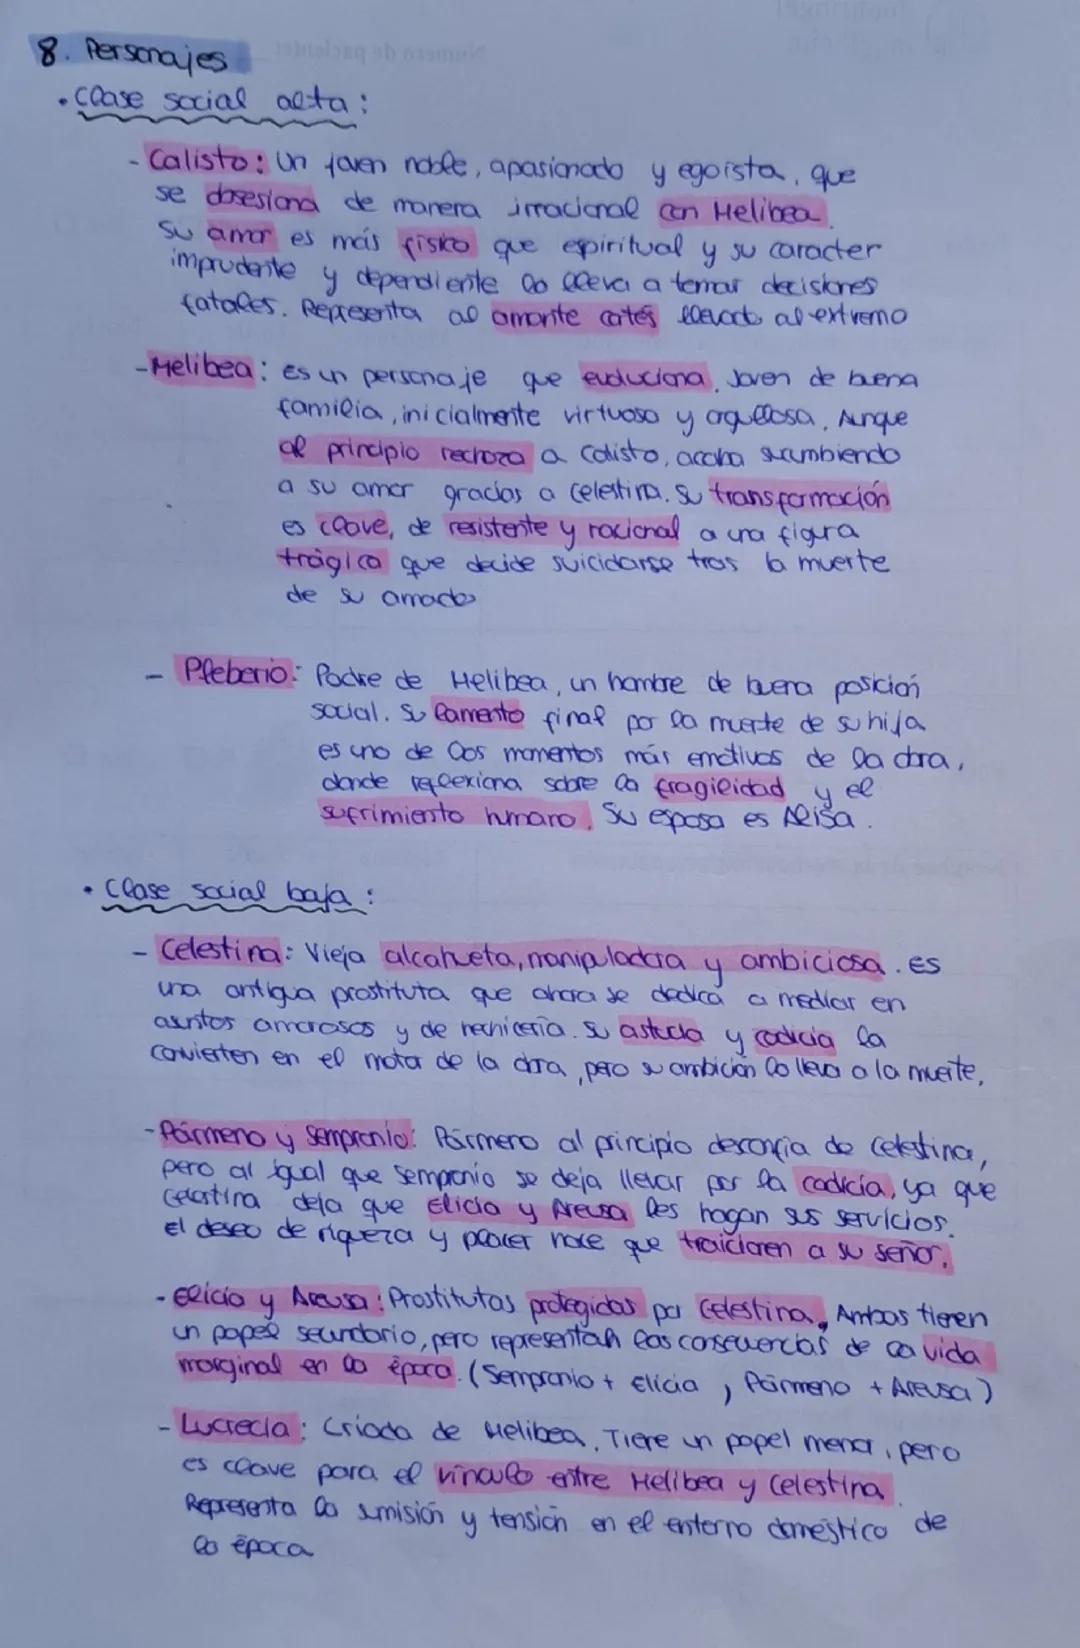 8. Personajes
• Clase social alta:
- Calisto: Un joven noble, apasionado y egoísta, que
se obsesiona de manera irracional con Melibea.
Su amor es más físico que espiritual y su caracter
imprudente y dependiente lo lleva a tomar decisiones
fatales. Representa al amante cortés llevado al extremo
- Melibea: Es un personaje que evoluciona. Joven de buena
familia, inicialmente virtuosa y orgullosa. Aunque
al principio rechaza a Calisto, acaba sucumbiendo
a su amor gracias a Celestina. Su transformación
es clave, de resistente y racional a una figura
trágica que decide suicidarse tras la muerte
de su amado
- Pleberio: Padre de Melibea, un hombre de buena posición
social. Su lamento final por la muerte de su hija
es uno de los momentos más emotivos de la obra,
donde reflexiona sobre la fragilidad y el
sufrimiento humano. Su esposa es Alisa.
• Clase social baja:
- Celestina: Vieja alcahueta, manipuladora y ambiciosa. es
una antigua prostituta que ahora se dedica a mediar en
asuntos amorosos y de hechicería. Su astucia y codicia la
convierten en el motor de la obra, pero su ambición la lleva a la muerte.
- Pármeno y Sempronio: Pármeno al principio desconfía de Celestina,
pero al igual que Sempronio se deja llevar por la codicia, ya que
Celestina deja que Elicia y Areusa les hagan sus servicios.
El deseo de riqueza y placer hace que traicionen a su señor.
- Elicia y Areusa: Prostitutas protegidas por Celestina. Ambas tienen
un papel secundario, pero representan las consecuencias de la vida
marginal en la época. (Sempronio + Elicia, Pármeno + Areusa)
- Lucrecia: Criada de Melibea. Tiene un papel menor, pero
es clave para el vínculo entre Melibea y Celestina.
Representa la sumisión y tensión en el entorno doméstico de
la época